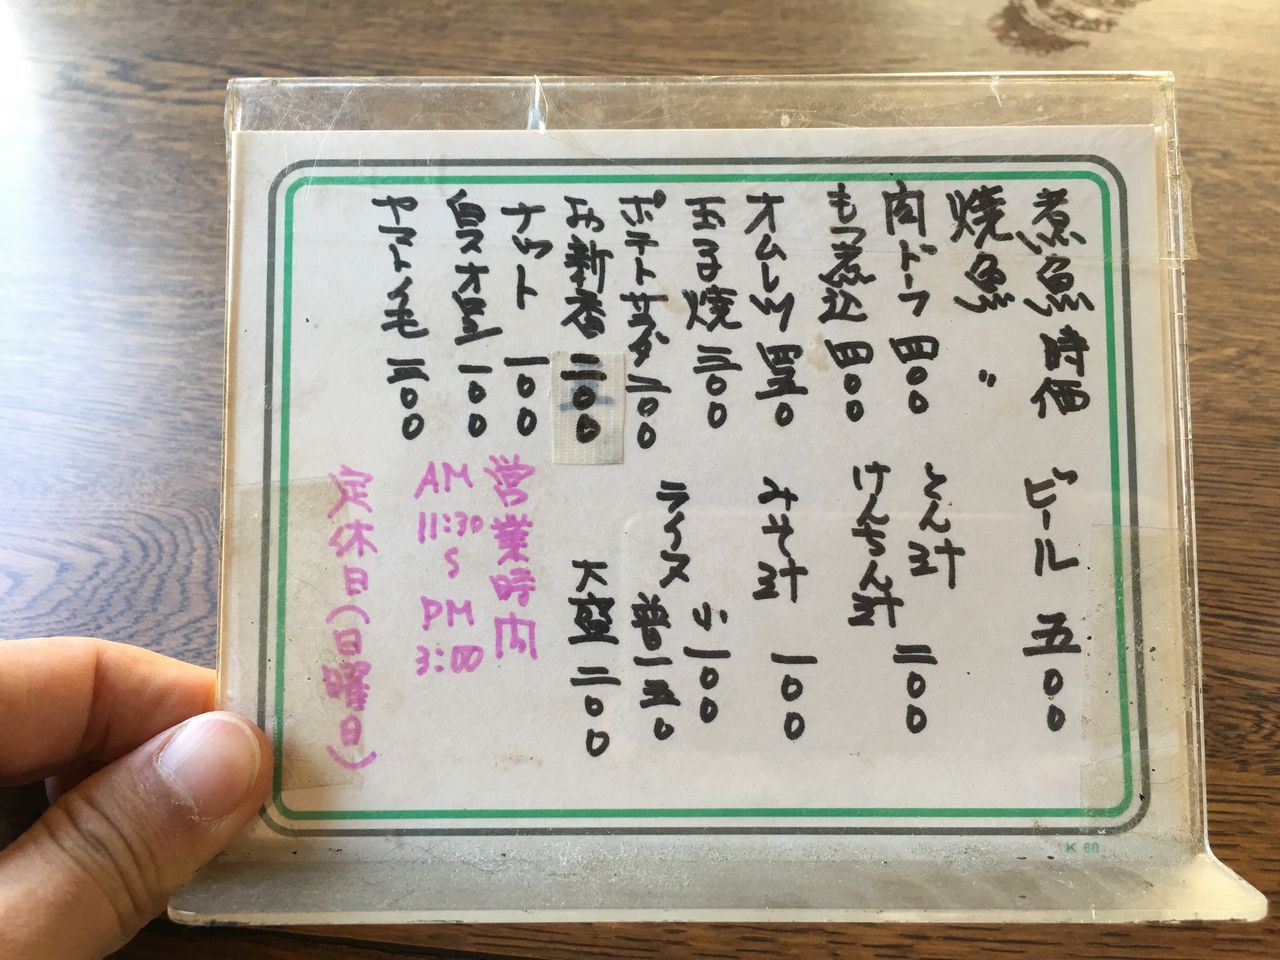 煮魚 時価
焼魚 〃
肉ドーフ 四〇〇
もつ煮込 四〇〇
オムレツ 四五〇
玉子焼 三〇〇
ポテトサラダ 二〇〇
お新香 二〇〇
ナット 一〇〇
白スオロシ 一〇〇
ヤマトイモ 三〇〇
ビール 五〇〇
とん汁
けんちん汁 二〇〇
みそ汁 一〇〇
ライス 小 一〇〇
普 一五〇
大盛 二〇〇
営業時間
AM
11:30
〜
PM
3:00
定休日(日曜日)
K 68